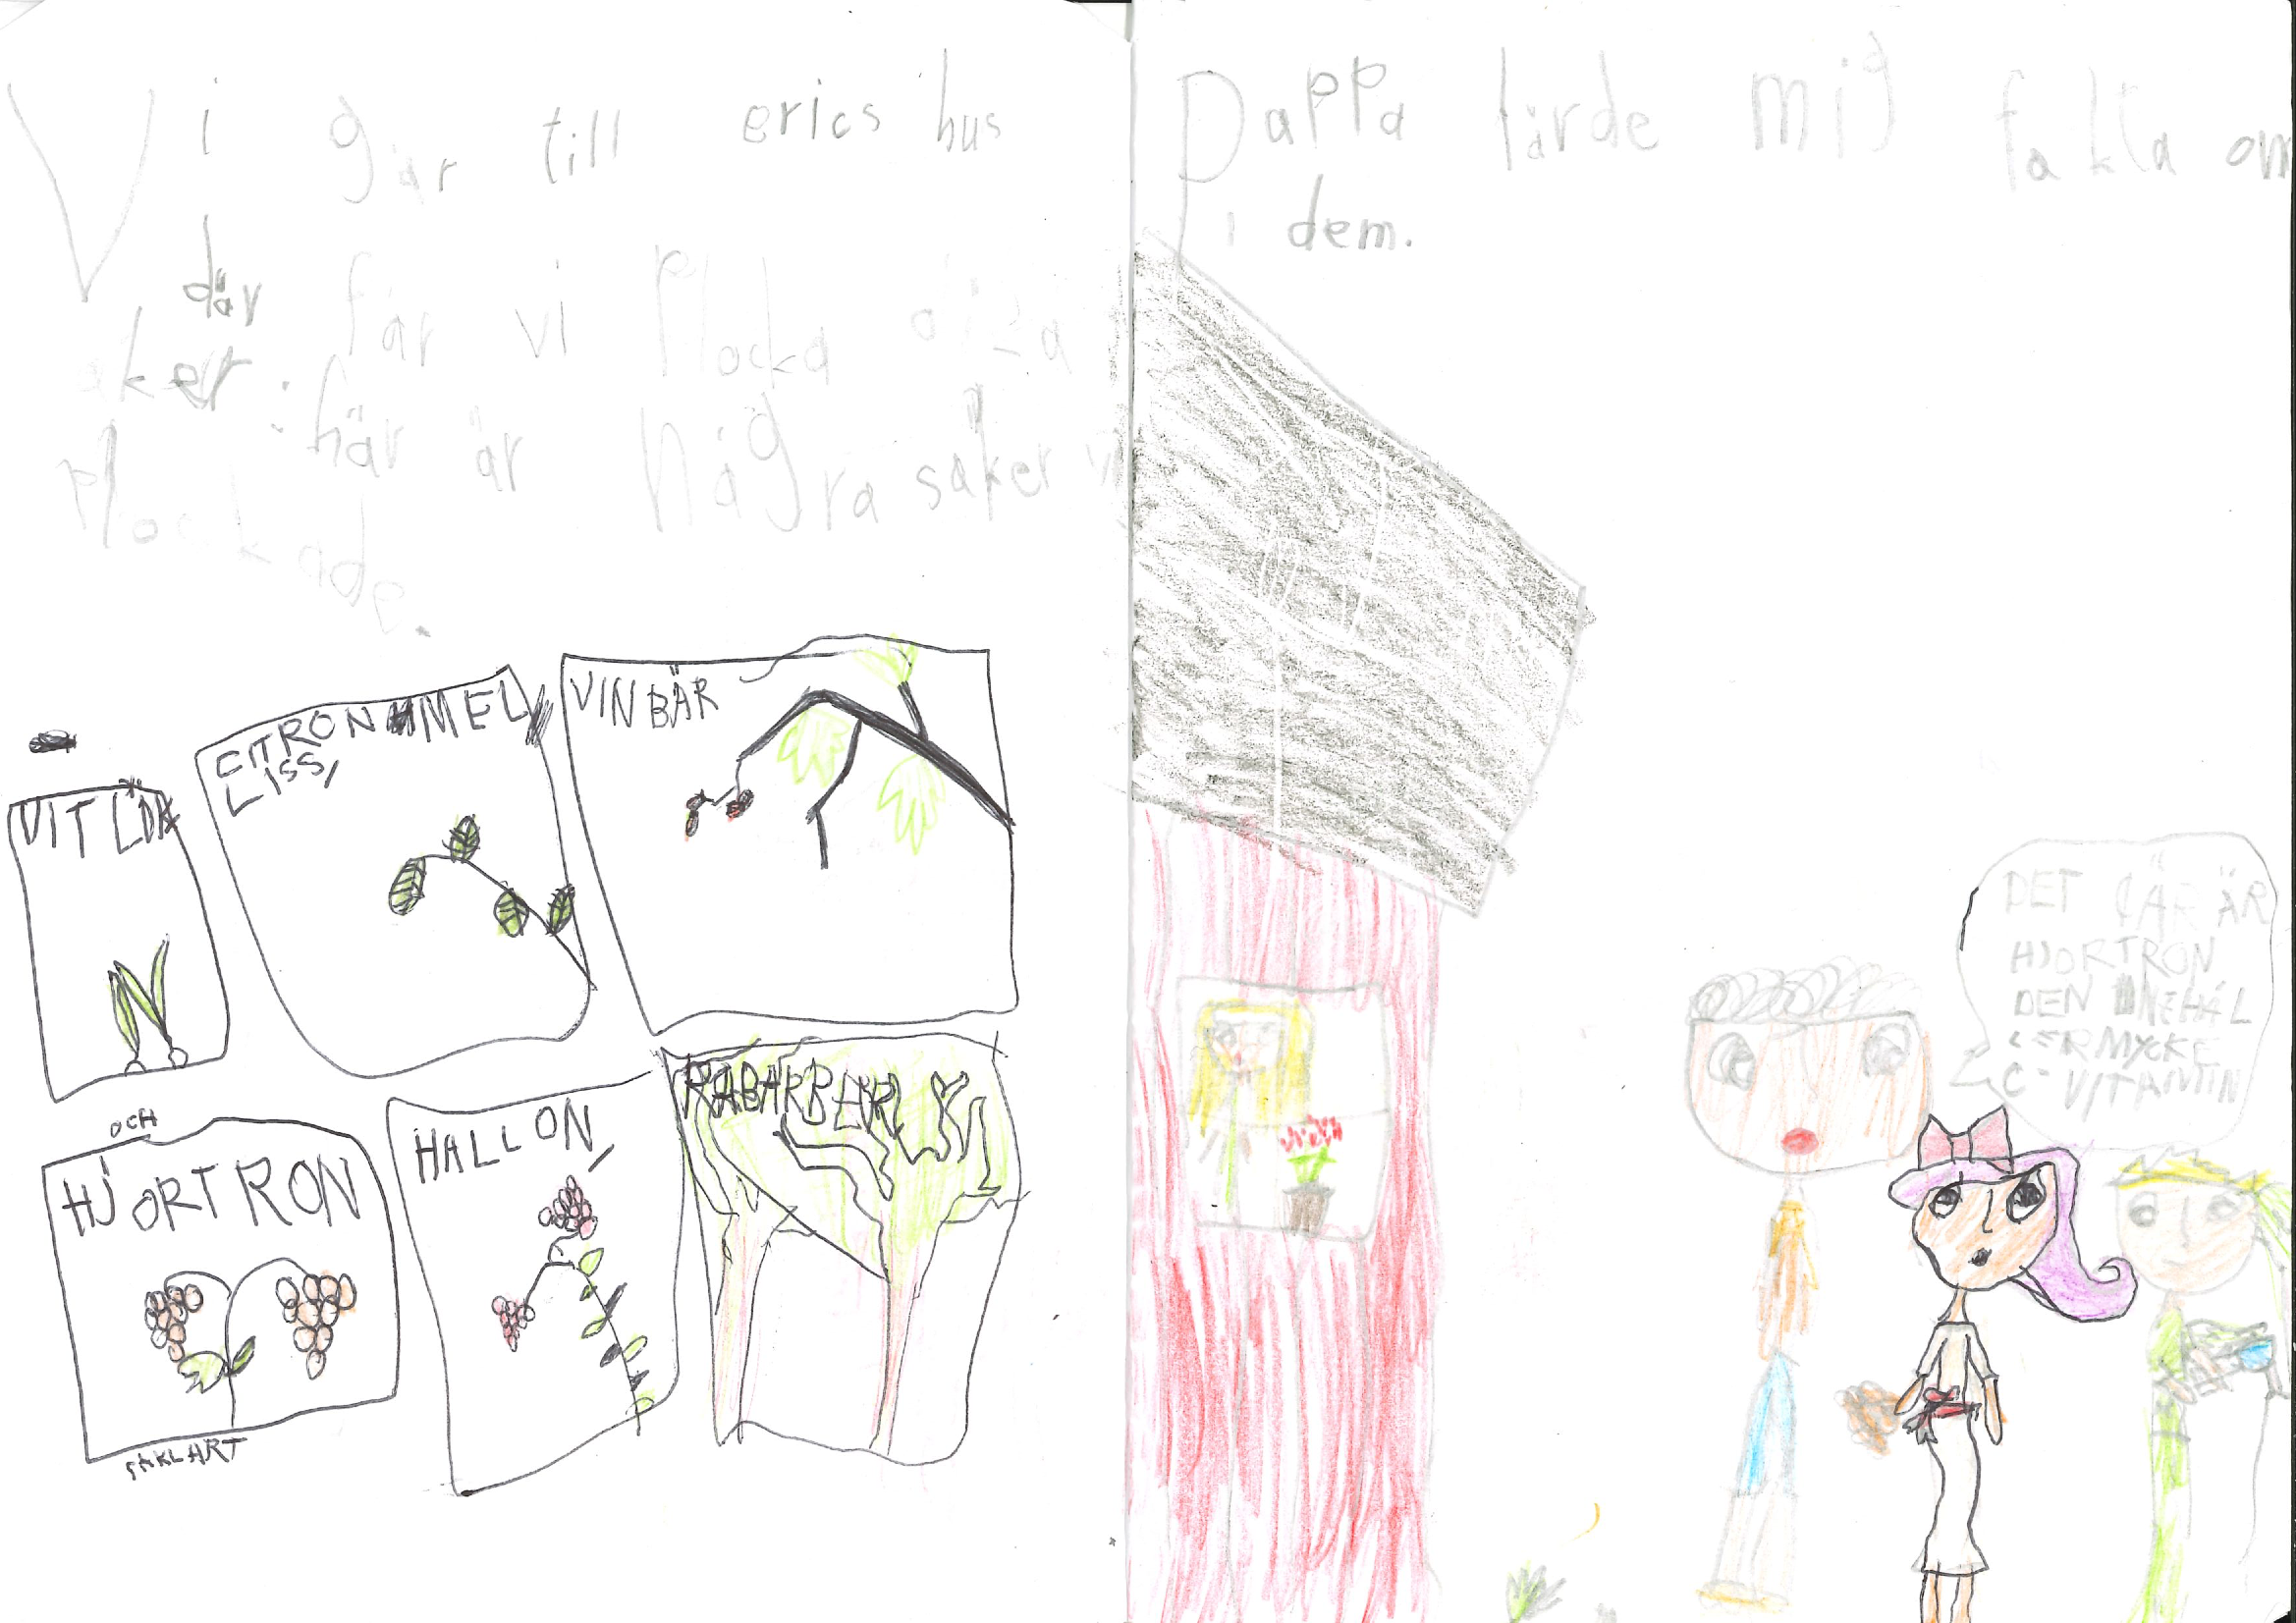 Vi går till erics hus
där får vi Plocka olika
saker. här är några saker vi
Plockade.
VIT LÖK
CITRON MEL
LISS,
VINBÄR
OCH
HJORTRON
SÅKLART
HALLON,
RABARBER
Pappa lärde mig fakta om
dem.
DET ÇÄR ÄR
HJORTRON
DEN INEHÅL
LER MYCKE
C-VITAMIN